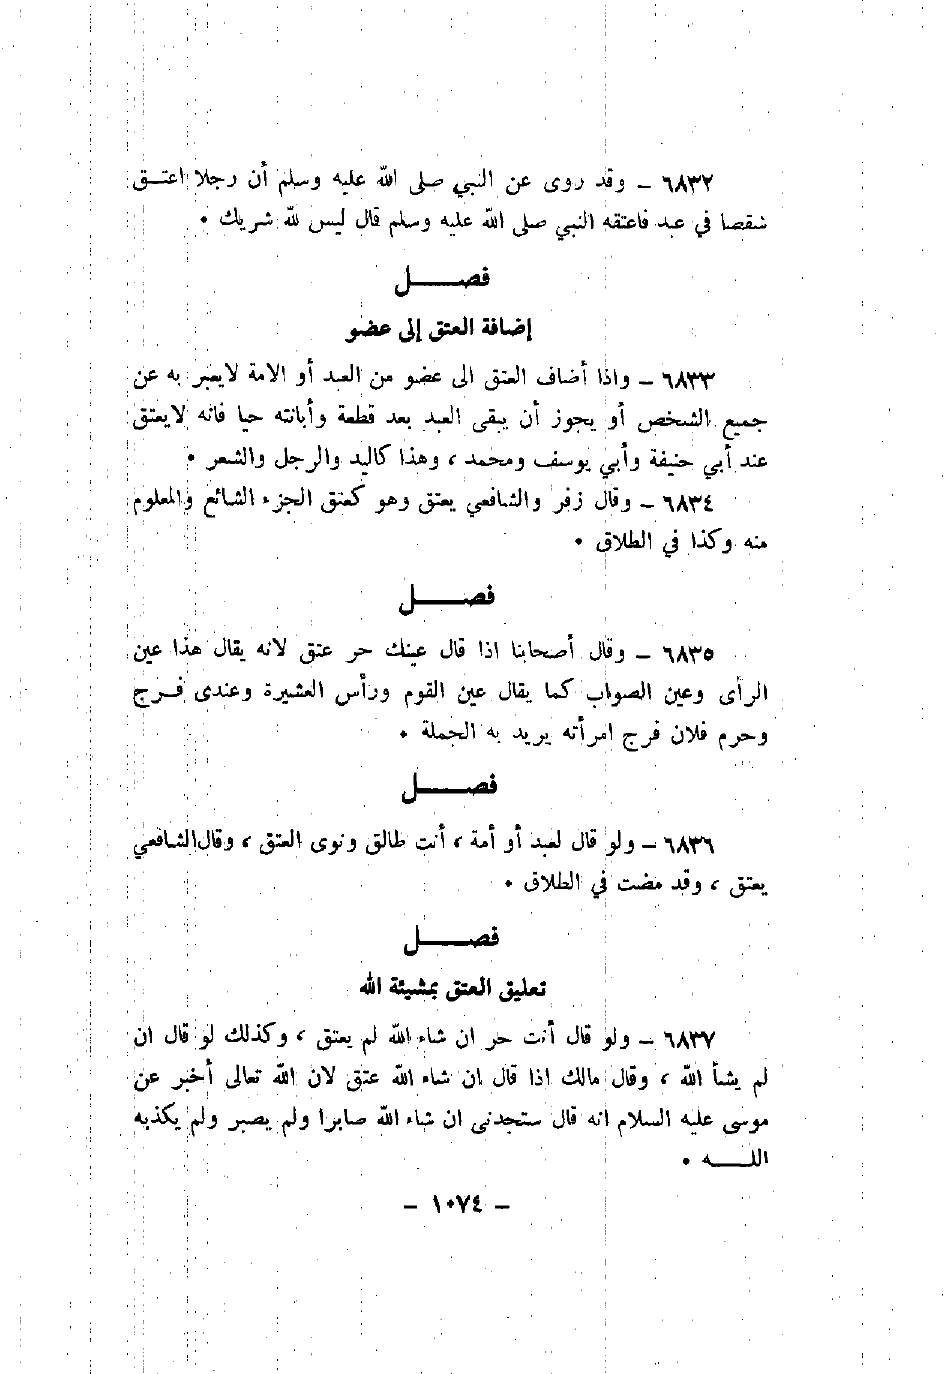 ٦٨٣٢ – وقد روى عن النبي صلى الله عليه وسلم أن رجلا اعتـــق
شقصا في عبد فاعتقه النبي صلى الله عليه وسلم قال ليس لله شريك •
فصــــــل
إضافة العتق إلى عضو
٦٨٣٣ – واذا أضاف العتق الى عضو من العبد أو الامة لايعبر به عن
جميع الشخص أو يجوز أن يبقى العبد بعد قطعة وأبانته حيا فانه لايعتق
عند أبي حنيفة وأبي يوسف ومحمد ، وهذا كاليد والرجل والشعر •
٦٨٣٤ – وقال زفر والشافعي يعتق وهو كعتق الجزء الشائع والمعلوم
منه وكذا في الطلاق •
فصــــــل
٦٨٣٥ – وقال أصحابنا اذا قال عينك حر عتق لانه يقال هذا عين
الرأى وعين الصواب كما يقال عين القوم ورأس العشيرة وعندى فــرج
وحرم فلان فرج امرأته يريد به الجملة •
فصــــــل
٦٨٣٦ – ولو قال لعبد أو أمة ، أنت طالق ونوى العتق ، وقال الشافعي
يعتق ، وقد مضت في الطلاق •
فصــــــل
تعليق العتق بمشيئة الله
٦٨٣٧ – ولو قال أنت حر ان شاء الله لم يعتق ، وكذلك لو قال ان
لم يشأ الله ، وقال مالك اذا قال ان شاء الله عتق لان الله تعالى أخبر عن
موسى عليه السلام انه قال ستجدنى ان شاء الله صابرا ولم يصبر ولم يكذبه
اللــــه •
– ١٠٧٤ –